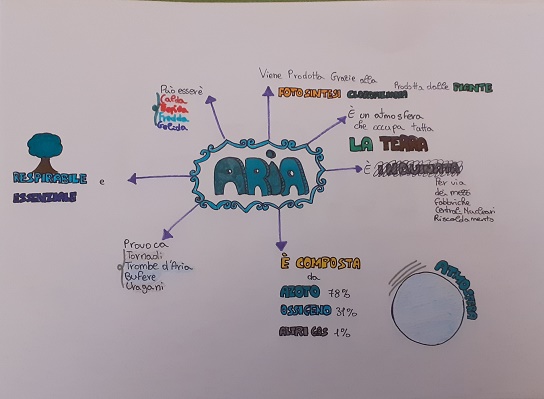 Viene Prodotta Grazie alla
FOTOSINTESI CLOROFILLIANA
Prodotta dalle PIANTE
Può essere
Calda
Fredda
Gelida
È un atmosfera
che occupa tutta
LA TERRA
ARIA
È INQUINATA
Per via
dei mezzi
Fabbriche
Centrali Nucleari
Riscaldamento
RESPIRABILE e
ESSENZIALE
Provoca
Tornadi
Trombe d'Aria
Bufere
Uragani
È COMPOSTA
da
AZOTO 78%
OSSIGENO 31%
ALTRI GAS 1%
ATMOSFERA